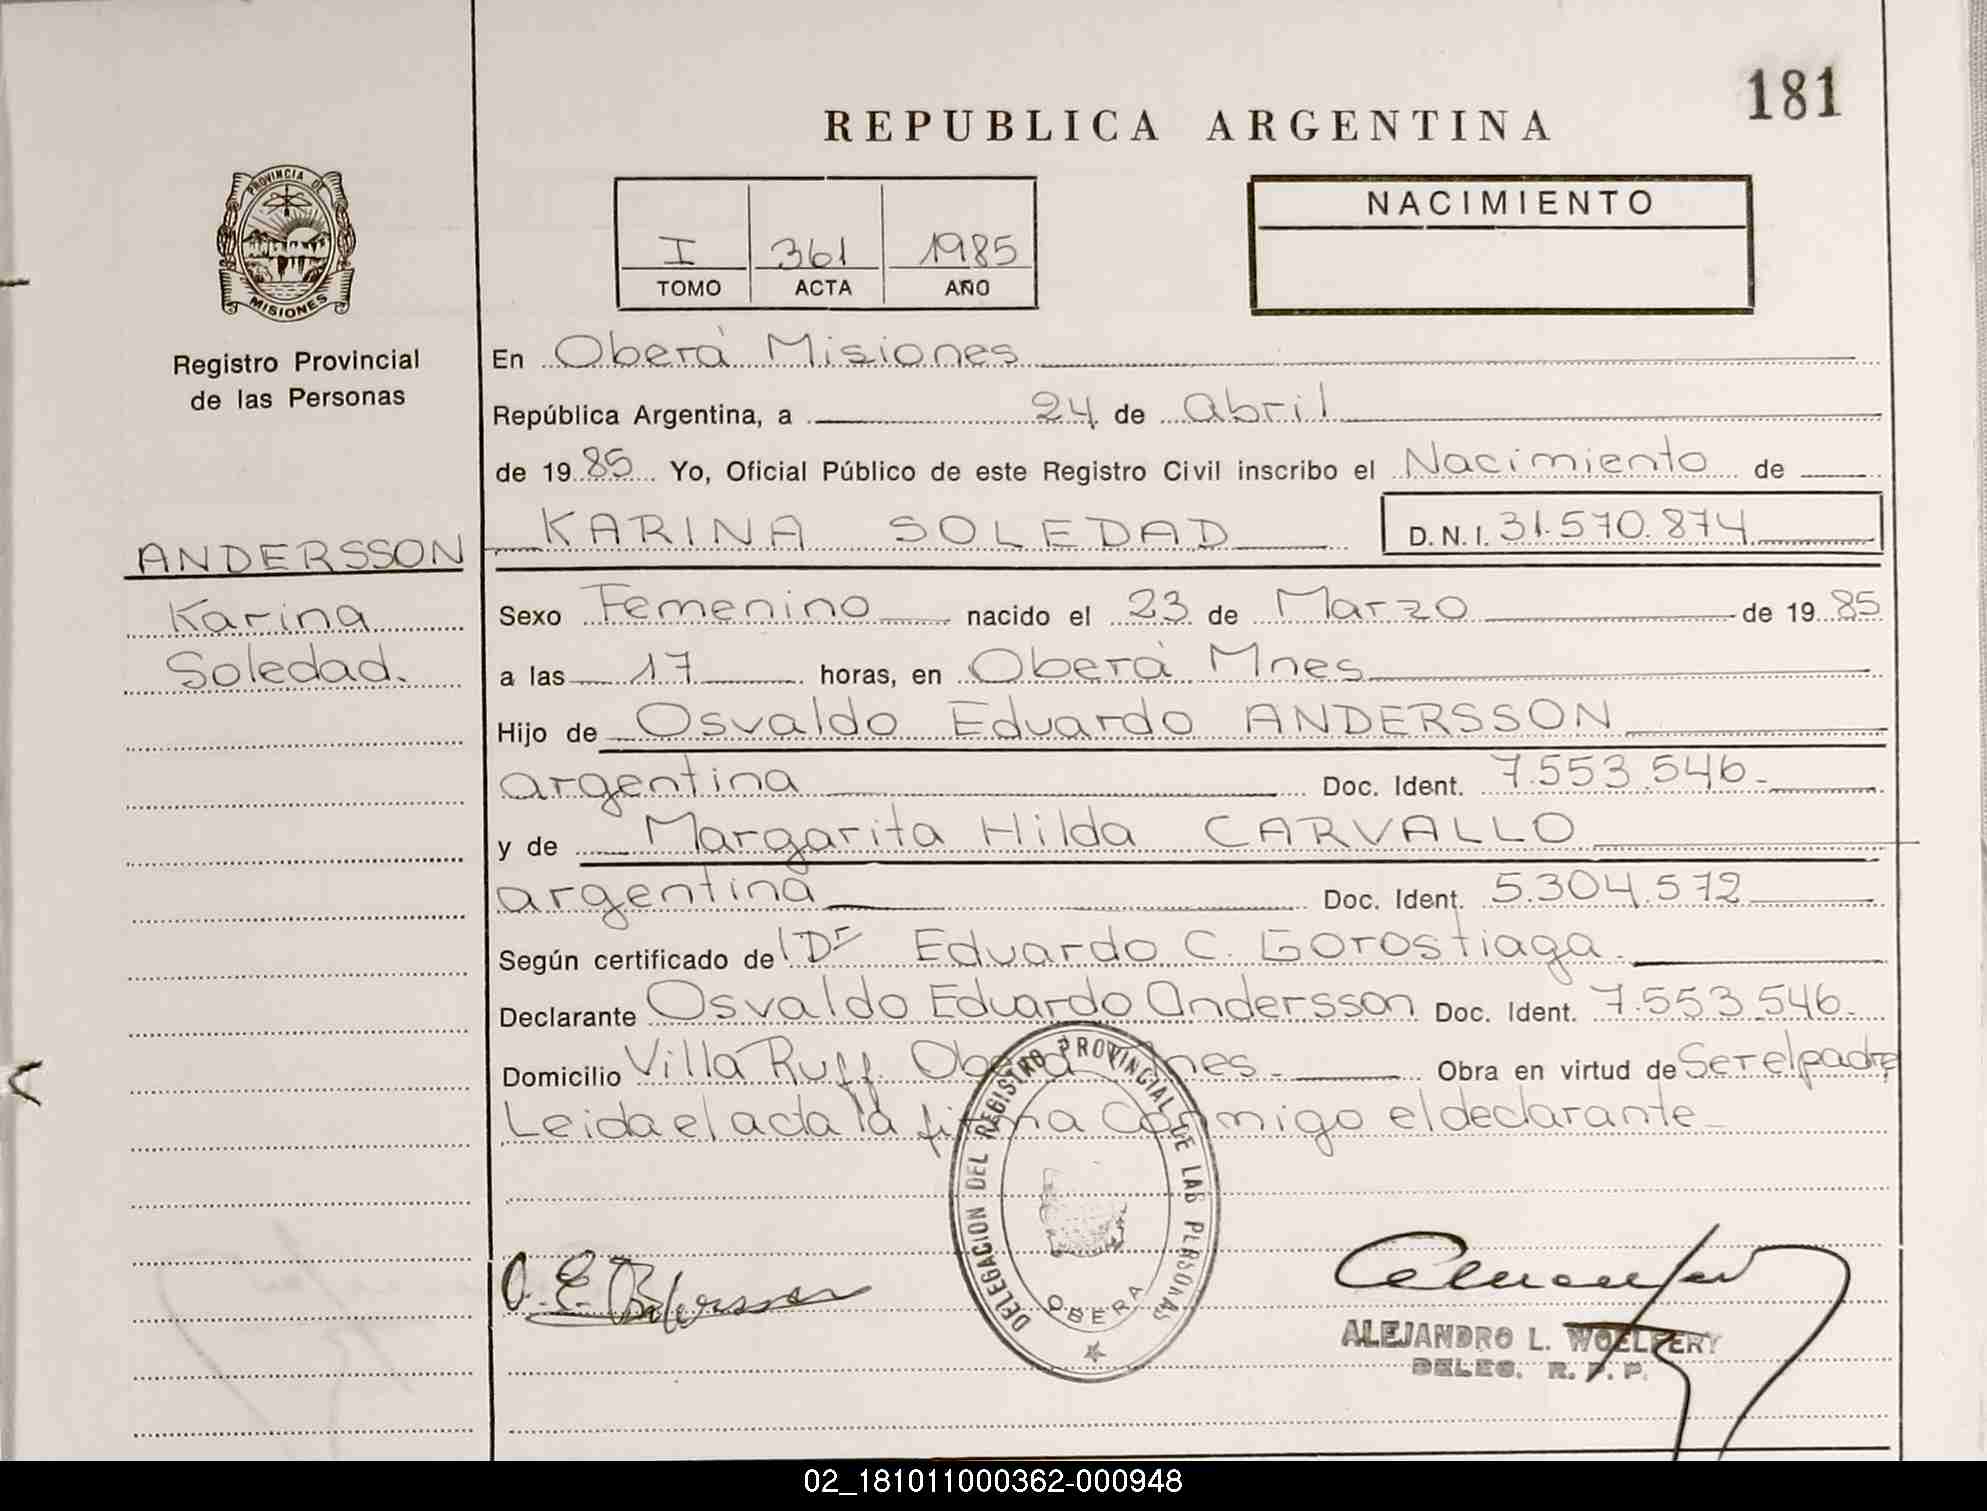 181
REPUBLICA ARGENTINA
PROVINCIA DE
MISIONES
Registro Provincial
de las Personas
I 361 1985
TOMO ACTA AÑO
NACIMIENTO
En Oberá Misiones
República Argentina, a 24 de abril
de 1985 Yo, Oficial Público de este Registro Civil inscribo el Nacimiento de
KARINA SOLEDAD D.N.I. 31.570.874
ANDERSSON
Karina
Soledad.
Sexo Femenino nacido el 23 de Marzo de 1985
a las 17 horas, en Oberá Mnes
Hijo de Osvaldo Eduardo ANDERSSON
argentina Doc. Ident. 7.553.546.
y de Margarita Hilda CARVALLO
argentina Doc. Ident. 5.304.572
Según certificado de Dr Eduardo C. Gorostiaga.
Declarante Osvaldo Eduardo Andersson Doc. Ident. 7.553.546.
Domicilio Villa Ruff. Oberá Mnes. Obra en virtud de Ser el padre
Leida el acta la firma Conmigo el declarante
DELEGACION DEL REGISTRO PROVINCIAL DE LAS PERSONAS
OBERA
O. E. Andersson
ALEJANDRO L. WOELFERT
DELEG. R. P. P.
02_181011000362-000948